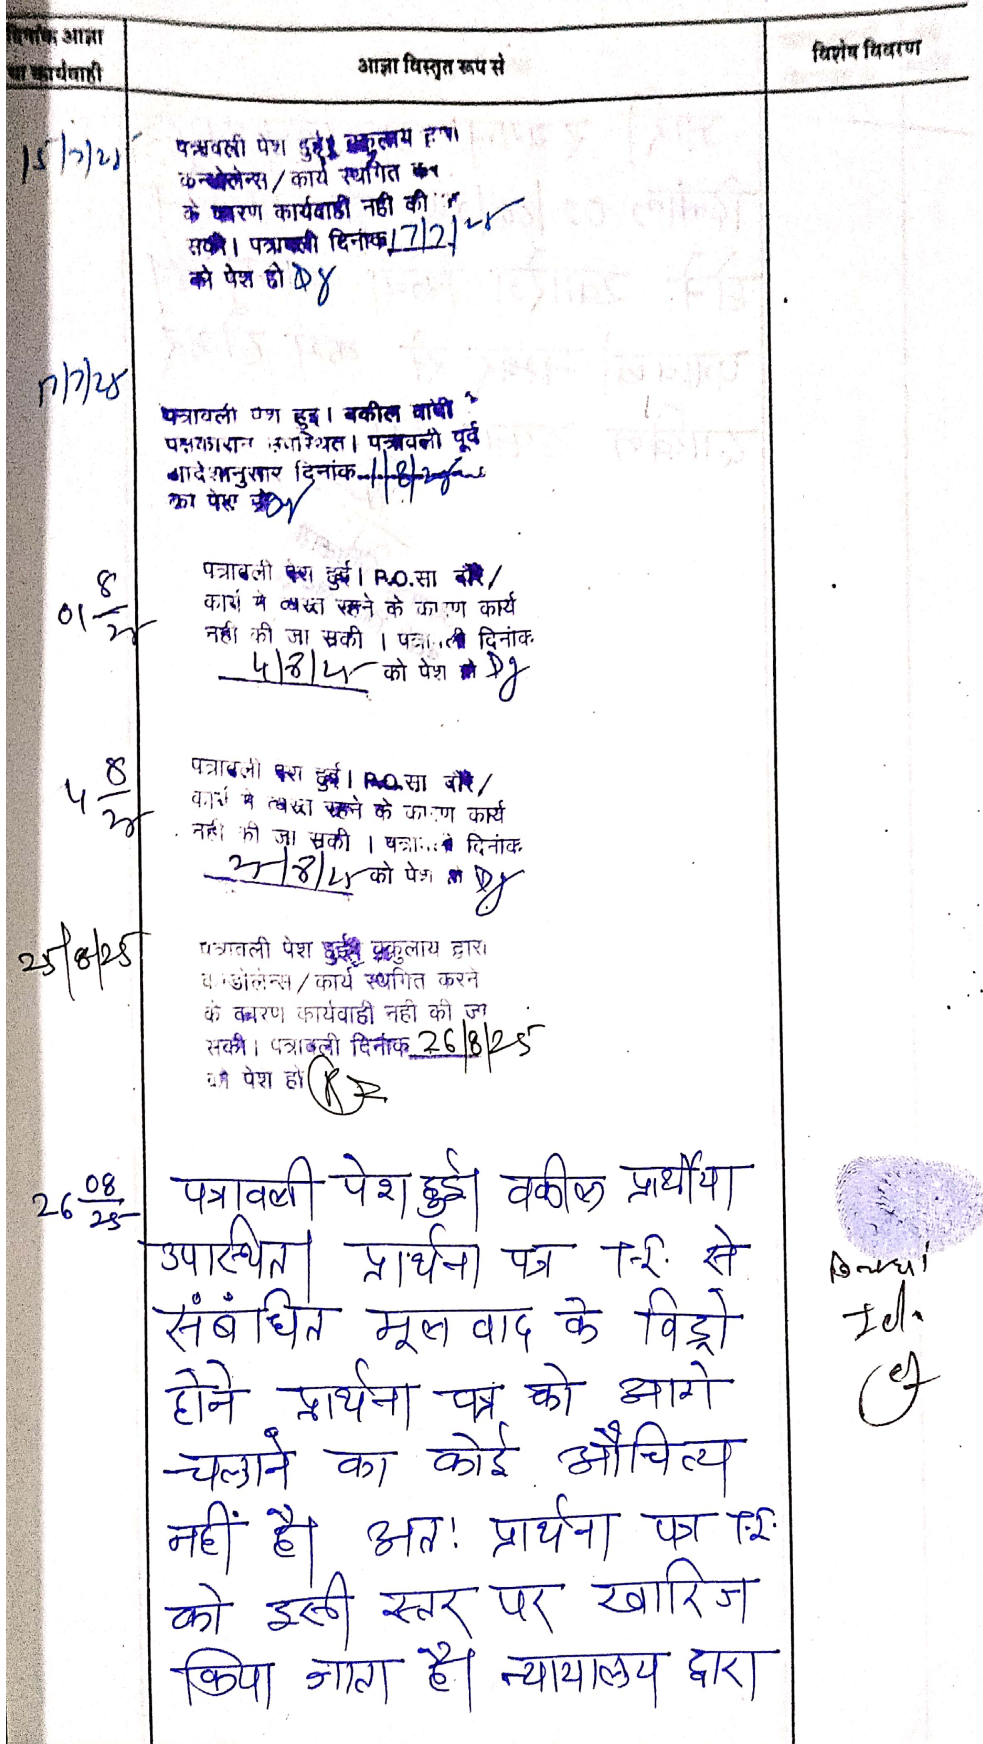 दिनांक आज्ञा
या कार्यवाही
आज्ञा विस्तृत रूप से
विशेष विवरण
15/7/25
पत्रावली पेश हुई। वकुलाय द्वारा
कन्डोलेन्स / कार्य स्थगित कर
के कारण कार्यवाही नही की
सकी। पत्रावली दिनांक 17/7/25
को पेश हो
17/7/25
पत्रावली पेश हुई। वकील वादी
पक्षकारान उपस्थित। पत्रावली पूर्व
आदेशानुसार दिनांक 1/8/25
को पेश हो
01 8/25
पत्रावली पेश हुई। P.O. सा दौरे /
कार्य मे व्यस्त रहने के कारण कार्य
नही की जा सकी । पत्रावली दिनांक
4/8/25 को पेश हो
4 8/25
पत्रावली पेश हुई। P.O. सा दौरे /
कार्य मे व्यस्त रहने के कारण कार्य
नही की जा सकी । पत्रावली दिनांक
25/8/25 को पेश हो
25/8/25
पत्रावली पेश हुई। वकुलाय द्वारा
कन्डोलेन्स / कार्य स्थगित करने
के कारण कार्यवाही नही की जा
सकी। पत्रावली दिनांक 26/8/25
को पेश हो
26 08/25
पत्रावली पेश हुई। वकील प्रार्थीया
उपस्थित। प्रार्थना पत्र T.I. से
संबंधित मूल वाद के विड्रो
होने प्रार्थना पत्र को आगे
चलाने का कोई औचित्य
नहीं है। अत: प्रार्थना पत्र T.I.
को इसी स्तर पर खारिज
किया जाता है। न्यायालय द्वारा
Id.